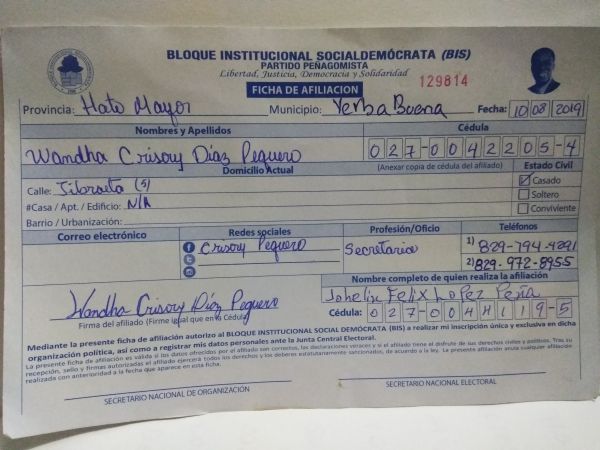 BLOQUE INSTITUCIONAL SOCIALDEMÓCRATA (BIS)
PARTIDO PEÑAGOMISTA
Libertad, Justicia, Democracia y Solidaridad
FICHA DE AFILIACION
129814
Provincia: Hato Mayor Municipio: Yerba Buena Fecha: 10 08 2019
Nombres y Apellidos Cédula
Wandha Crisory Díaz Peguero 027-0042205-4
Domicilio Actual (Anexar copia de cédula del afiliado) Estado Civil
Calle: (5) Casado
#Casa / Apt. / Edificio: N/A Soltero
Barrio / Urbanización: Conviviente
Correo electrónico Redes sociales Profesión/Oficio Teléfonos
Crisory Peguero Secretaria 1) 829-794-4291
2) 829-972-8955
Nombre completo de quien realiza la afiliación
Wandha Crisory Díaz Peguero Johelix Felix Lopez Peña
Firma del afiliado (Firme igual que en la Cédula) Cédula: 027-004H119-5
Mediante la presente ficha de afiliación autorizo al BLOQUE INSTITUCIONAL SOCIAL DEMÓCRATA (BIS) a realizar mi inscripción única y exclusiva en dicha
organización política, así como a registrar mis datos personales ante la Junta Central Electoral.
La presente ficha de afiliación es válida si los datos ofrecidos por el afiliado son correctos, las declaraciones veraces y si el afiliado tiene el disfrute de sus derechos civiles y políticos. Tras su
recepción, sello y firmas autorizadas el afiliado ejercerá todos los derechos y los deberes estatutariamente sancionados, de acuerdo a la ley. La presente afiliación anula cualquier afiliación
realizada con anterioridad a la fecha que aparece en esta ficha.
SECRETARIO NACIONAL DE ORGANIZACIÓN SECRETARIO NACIONAL ELECTORAL